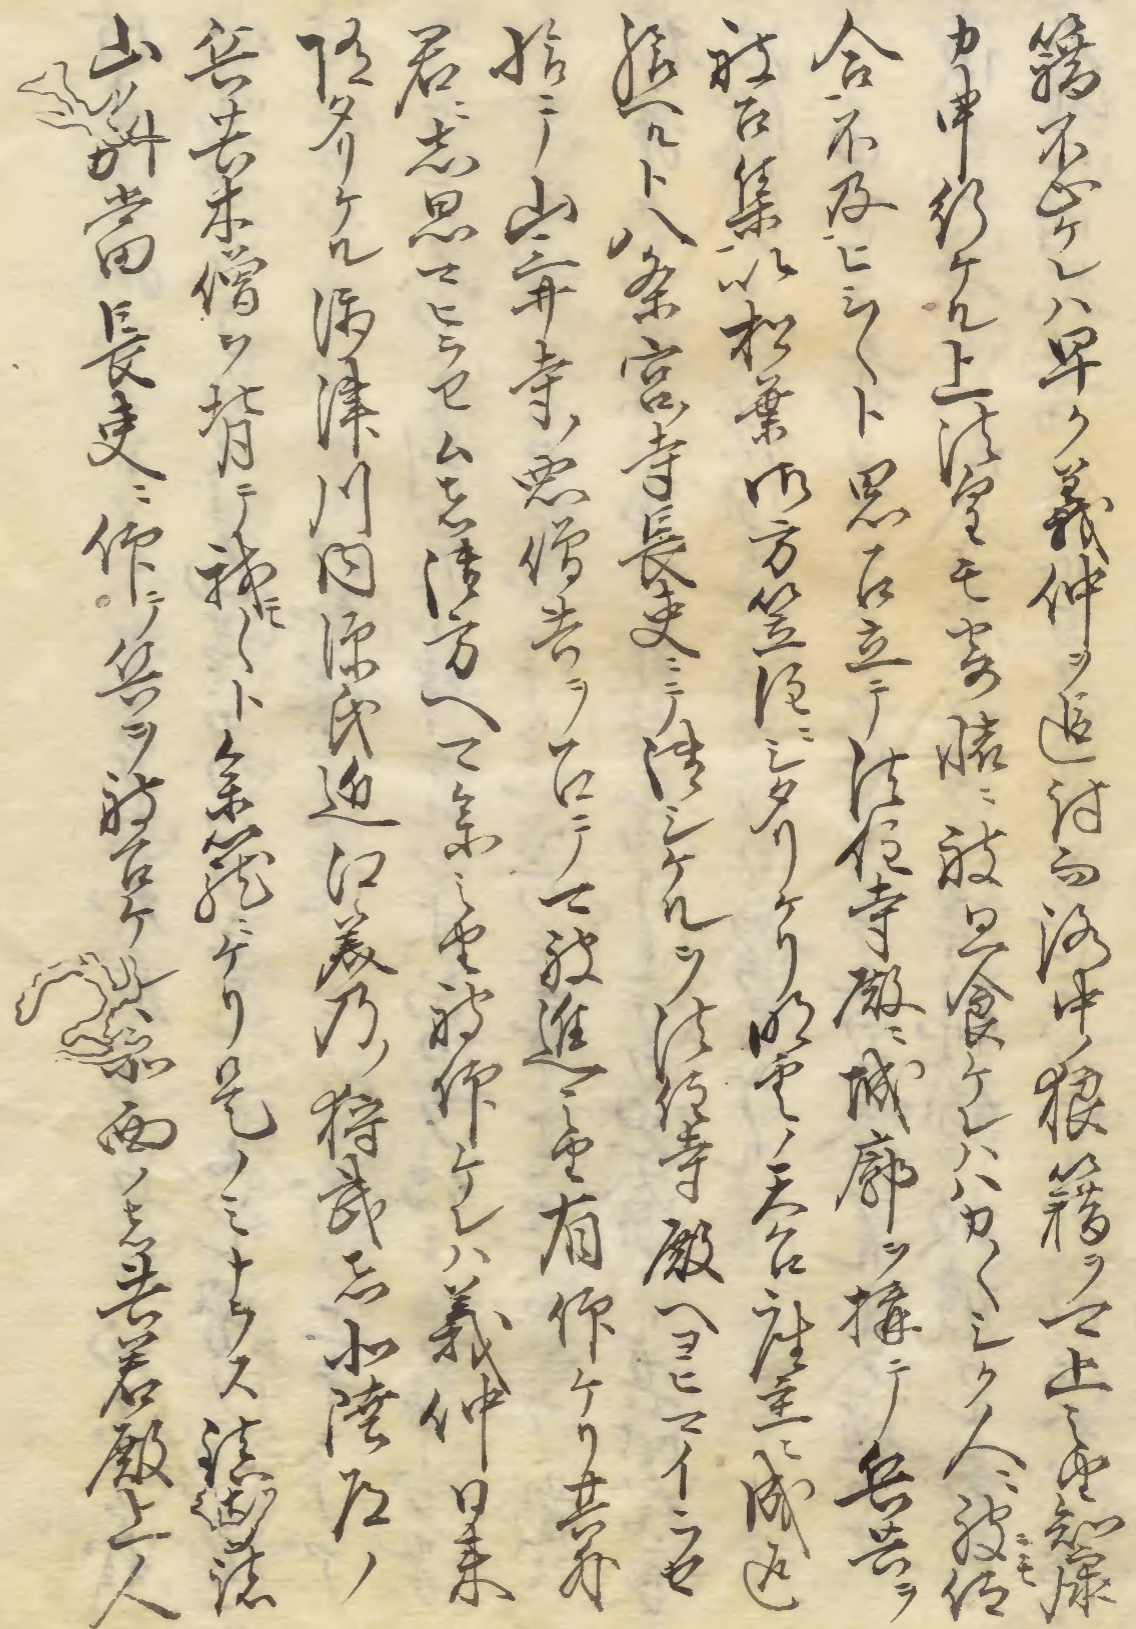 籍不止ケレハ早ク義仲ヲ追討シ洛中ノ狼籍ヲ可止之由知康
カ申行ケル上法皇モ安膳ニ被思食ケレハハカ〱シク人ニモ被仰
合ニ不及ヒシ〱ト思召立テ法住寺殿ニ城廓ヲ構テ兵共ヲ
被召集以松葉御方笠注ニシタリケリ明雲ノ天台座主ニ成返
給ヘルト八条宮寺長吏ニテ渡シケルヲ法住寺殿ヘヨヒマイラセ
給テ山三井寺ノ悪僧共ヲ召テ可被進之由有仰ケリ其外
君ニ志思マヒラセム者御方ヘ可参之由被仰ケレハ義仲日来
随タリケル源津川内源氏近江美乃ノ狩武者北陸道ノ
兵共木僧ヲ背テ我モ〱ト参籠ニケリ是ノミナラス諸寺諸
山ノ別當長吏ニ仰テ兵ヲ被召ケ 北面ノ者共若殿上人